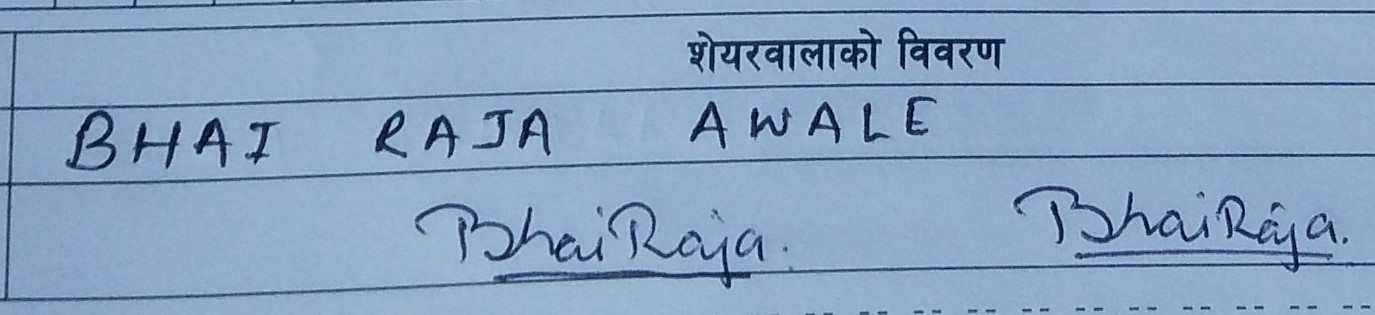 शेयरवालाको विवरण
BHAI RAJA AWALE
BhaiRaja. BhaiRaja.